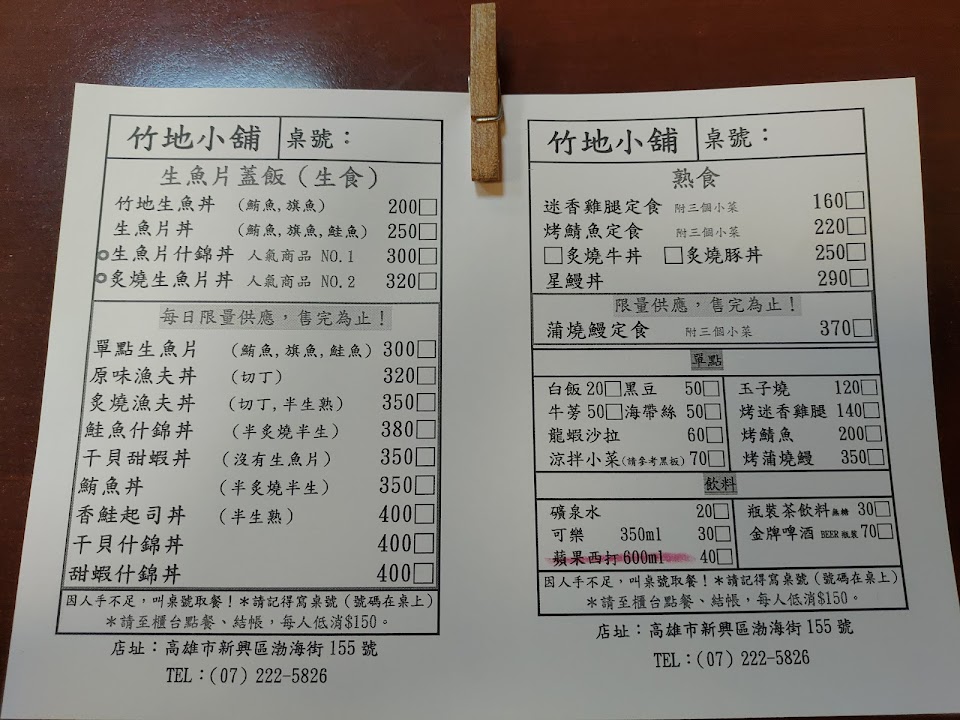 竹地小舖 桌號：
生魚片蓋飯（生食）
竹地生魚丼 （鮪魚,旗魚） 200□
生魚片丼 （鮪魚,旗魚,鮭魚） 250□
生魚片什錦丼 人氣商品 NO.1 300□
炙燒生魚片丼 人氣商品 NO.2 320□
每日限量供應，售完為止！
單點生魚片 （鮪魚,旗魚,鮭魚） 300□
原味漁夫丼 （切丁） 320□
炙燒漁夫丼 （切丁,半生熟） 350□
鮭魚什錦丼 （半炙燒半生） 380□
干貝甜蝦丼 （沒有生魚片） 350□
鮪魚丼 （半炙燒半生） 350□
香鮭起司丼 （半生熟） 400□
干貝什錦丼 400□
甜蝦什錦丼 400□
因人手不足，叫桌號取餐！＊請記得寫桌號（號碼在桌上）
＊請至櫃台點餐、結帳，每人低消$150。
店址：高雄市新興區渤海街 155 號
TEL：(07) 222-5826
竹地小舖 桌號：
熟食
迷香雞腿定食 附三個小菜 160□
烤鯖魚定食 附三個小菜 220□
□炙燒牛丼 □炙燒豚丼 250□
星鰻丼 290□
限量供應，售完為止！
蒲燒鰻定食 附三個小菜 370□
單點
白飯 20□黑豆 50□ 玉子燒 120□
牛蒡 50□海帶絲 50□ 烤迷香雞腿 140□
龍蝦沙拉 60□ 烤鯖魚 200□
涼拌小菜(請參考黑板) 70□ 烤蒲燒鰻 350□
飲料
礦泉水 20□ 瓶裝茶飲料無糖 30□
可樂 350ml 30□ 金牌啤酒 BEER 瓶裝 70□
蘋果西打 600ml 40□
因人手不足，叫桌號取餐！＊請記得寫桌號（號碼在桌上）
＊請至櫃台點餐、結帳，每人低消$150。
店址：高雄市新興區渤海街 155 號
TEL：(07) 222-5826